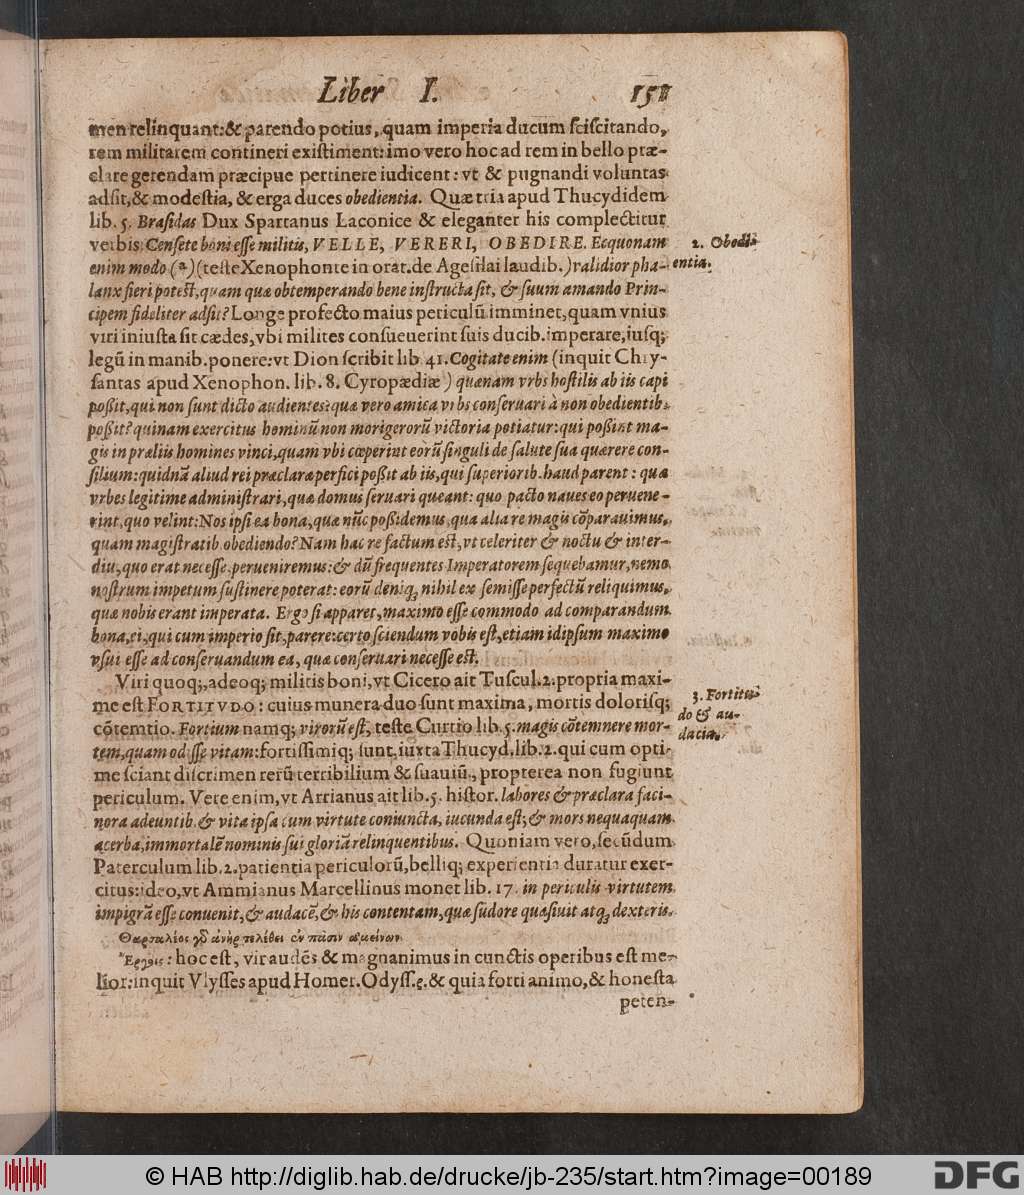 Liber I. 151
men relinquant: & parendo potius, quam imperia ducum sciscitando,
rem militarem contineri existiment: imo vero hoc ad rem in bello præ-
clare gerendam præcipue pertinere iudicent: vt & pugnandi voluntas
adsit, & modestia, & erga duces obedientia. Quæ tria apud Thucydidem
lib. 5. Brasidas Dux Spartanus Laconice & eleganter his complectitur
verbis: Censete boni esse militis, VELLE, VERERI, OBEDIRE. Ecquonam
2. Obedi-
entia.
enim modo (a) (teste Xenophonte in orat. de Agesilai laudib.) validior pha-
lanx fieri potest, quam quæ obtemperando bene instructa sit, & suum amando Prin-
cipem fideliter adsit? Longe profecto maius periculū imminet, quam vnius
viri iniusta sit cædes, vbi milites consueuerint suis ducib. imperare, iusq;
legū in manib. ponere: vt Dion scribit lib 41. Cogitate enim (inquit Chry-
santas apud Xenophon. lib. 8. Cyropædiæ) quænam vrbs hostilis ab iis capi
possit, qui non sunt dicto audientes: quæ vero amica vrbs conseruari à non obedientib.
possit? quinam exercitus hominū non morigerorū victoria potiatur: qui possint ma-
gis in præliis homines vinci, quam vbi cœperint eorū singuli de salute sua quærere con-
silium: quidnā aliud rei præclaræ perfici possit ab iis, qui superiorib. haud parent: quæ
vrbes legitime administrari, quæ domus seruari queant: quo pacto naues eo peruene-
rint, quo velint: Nos ipsi ea bona, quæ nūc possidemus, qua alia re magis cōparauimus,
quam magistratib. obediendo? Nam hac re factum est, vt celeriter & noctu & inter-
diu, quo erat necesse, perueniremus: & dū frequentes Imperatorem sequebamur, nemo
nostrum impetum sustinere poterat: eorū deniq; nihil ex semisse perfectū reliquimus,
quæ nobis erant imperata. Ergo si apparet, maximo esse commodo ad comparandum
bona, ei, qui cum imperio sit, parere: certo sciendum vobis est, etiam idipsum maximo
vsui esse ad conseruandum ea, quæ conseruari necesse est.
Viri quoq;, adeoq; militis boni, vt Cicero ait Tuscul. 2. propria maxi-
me est FORTITVDO: cuius munera duo sunt maxima, mortis dolorisq;
3. Fortitu-
do & au-
dacia.
cōtemtio. Fortium namq; virorū est, teste Curtio lib. 5. magis cōtemnere mor-
tem, quam odisse vitam: fortissimiq; sunt, iuxta Thucyd. lib. 2. qui cum opti-
me sciant discrimen rerū terribilium & suauiū, propterea non fugiunt
periculum. Vere enim, vt Arrianus ait lib. 5. histor. labores & præclara faci-
nora adeuntib. & vita ipsa cum virtute coniuncta, iucunda est; & mors nequaquam
acerba, immortalē nominis sui gloriā relinquentibus. Quoniam vero, secūdum
Paterculum lib. 2. patientia periculorū, belliq; experientia duratur exer-
citus: ideo, vt Ammianus Marcellinus monet lib. 17. in periculis virtutem
impigrā esse conuenit, & audacē, & his contentam, quæ sudore quæsiuit atq; dexteris.
Θαρσαλέος γὸ ἀνὴρ τελέθει ἐν πᾶσιν ἀμείνων
Ἔργοις: hoc est, vir audēs & magnanimus in cunctis operibus est me-
lior: inquit Vlysses apud Homer. Odyss. & quia forti animo, & honesta
peten-
© HAB http://diglib.hab.de/drucke/jb-235/start.htm?image=00189
DFG